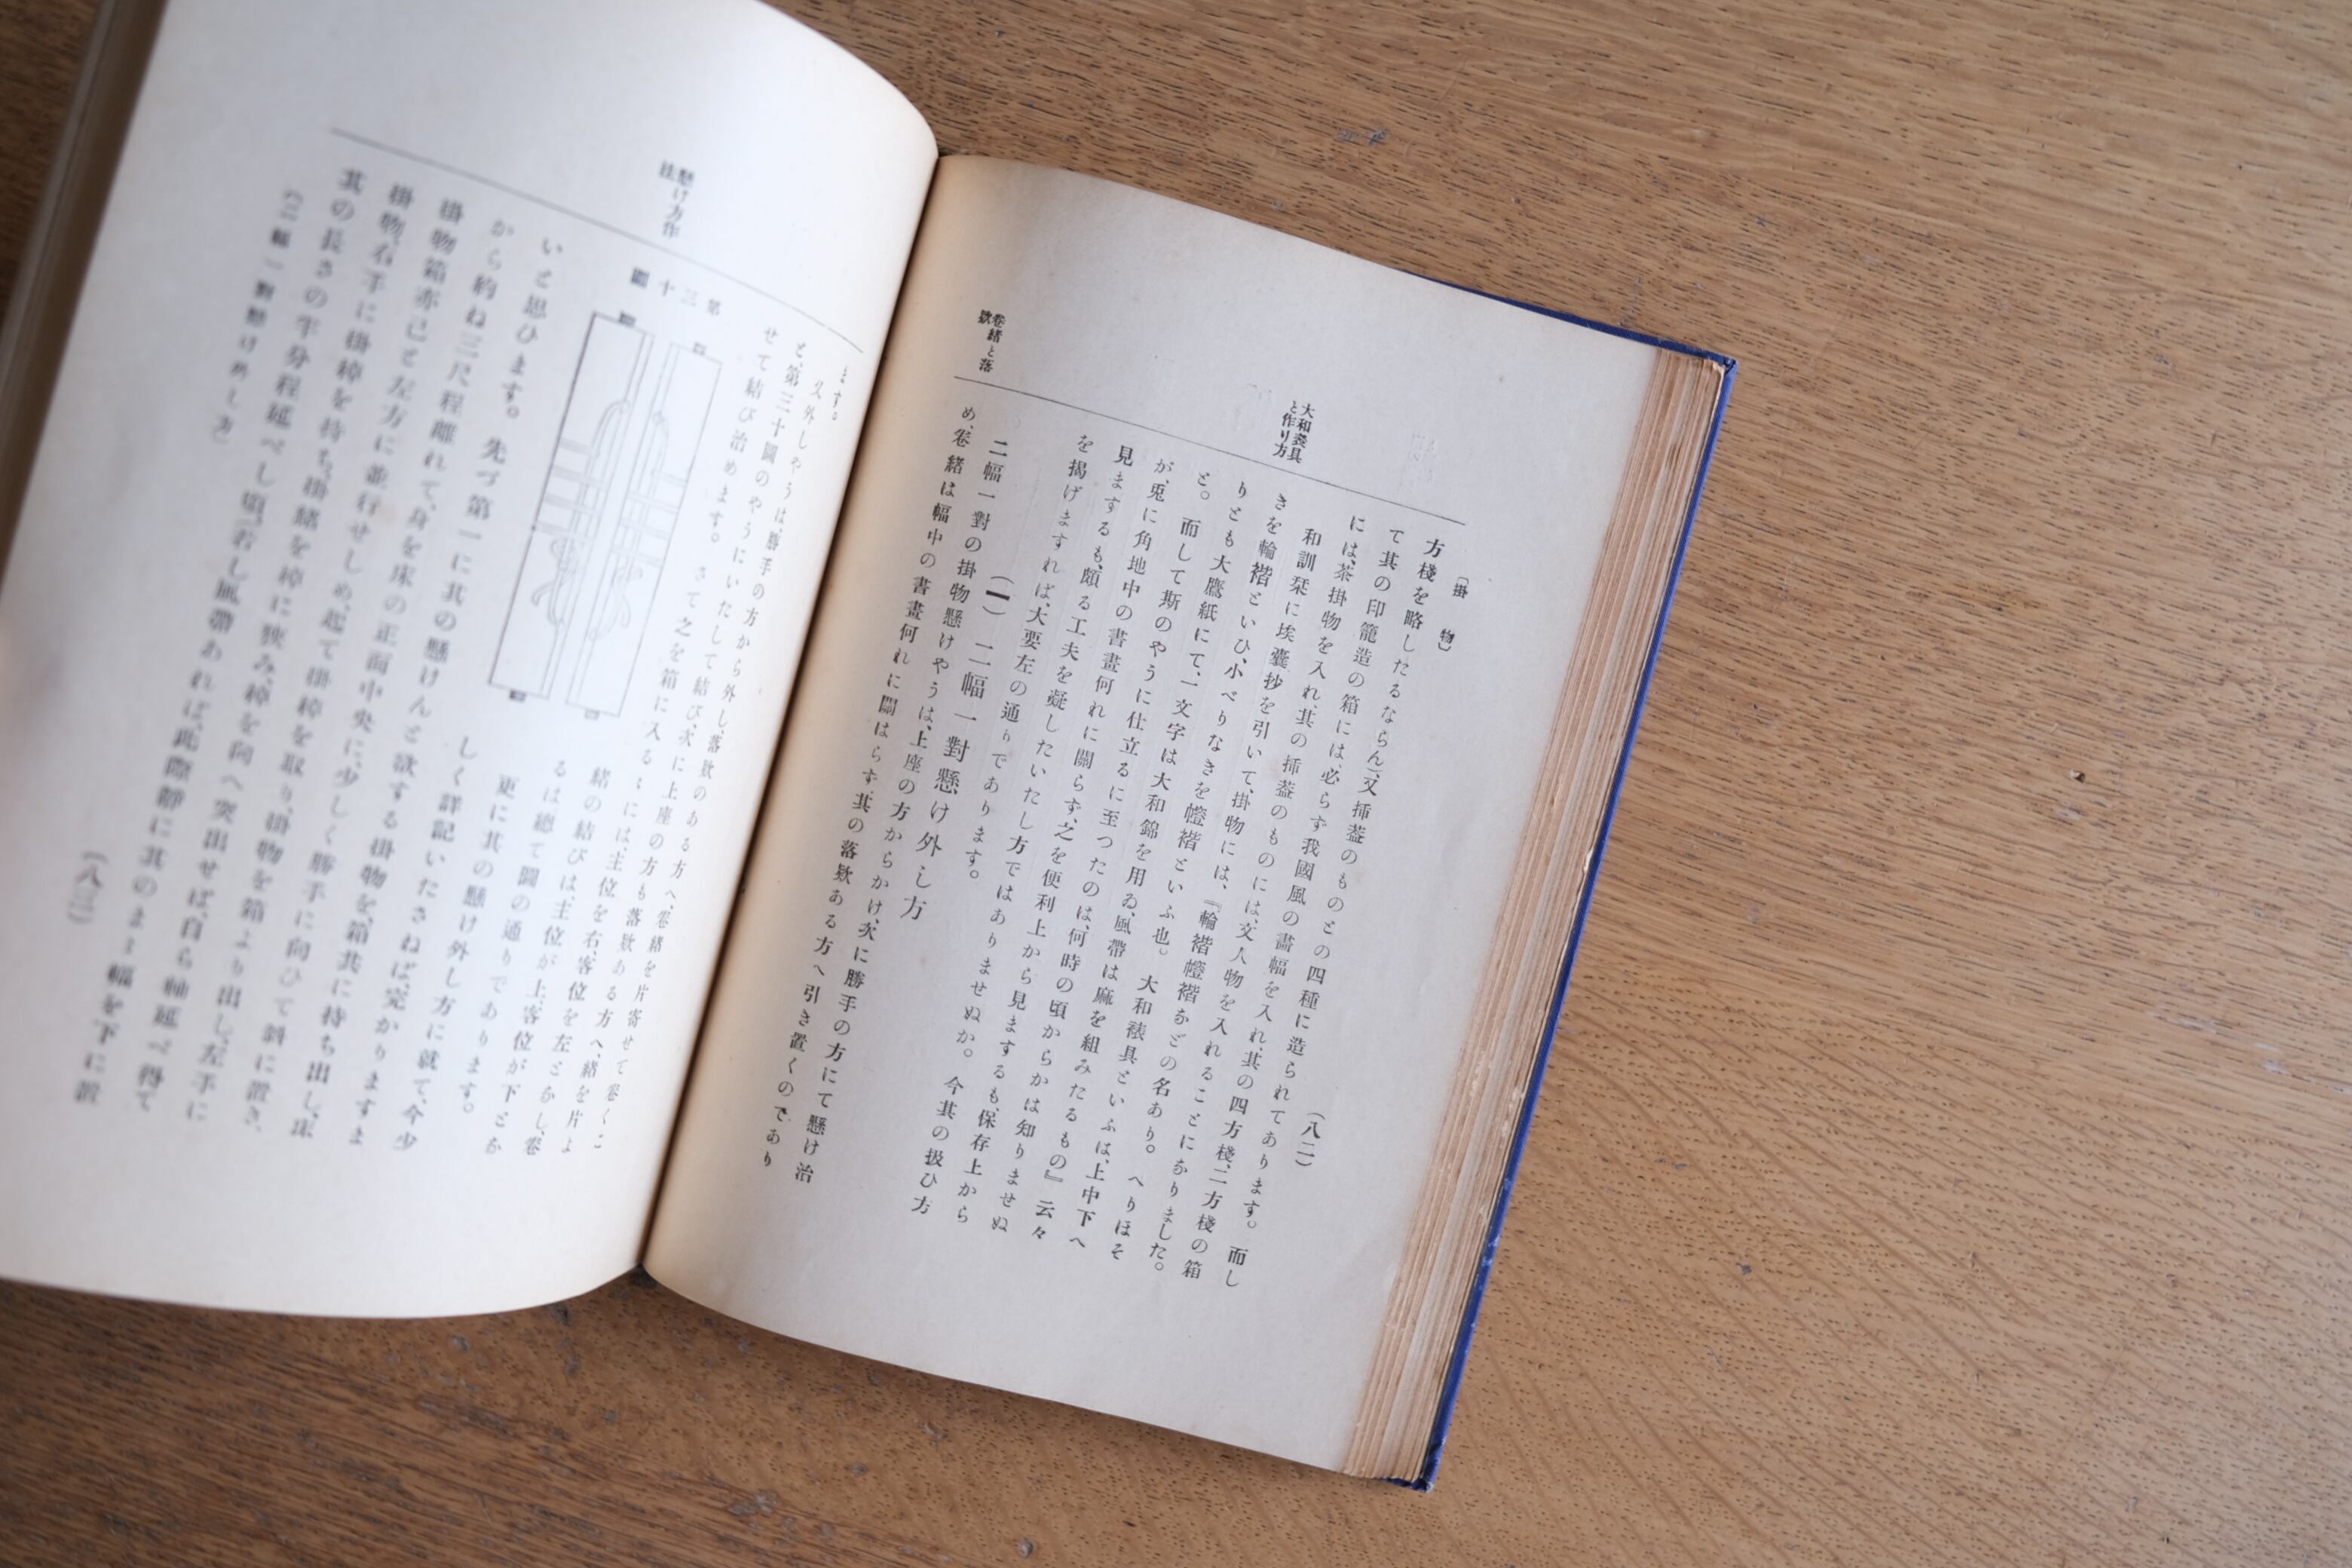 〔掛 物〕
(八二)
方棧を略したるならん)又挿葢のものとの四種に造られてあります。而し
て其の印籠造の箱には、必らず我國風の書幅を入れ、其の四方棧、二方棧の箱
には、茶掛物を入れ、其の挿葢のものには、文人物を入れることになりました。
和訓栞に埃囊抄を引いて、掛物には、『輪褙幢褙などの名あり。へりほそ
きを輪褙といひ、小べりなきを幢褙といふ也。大和裱具といふは、上中下へ
りとも大鷹紙にて、一文字は大和錦を用ゐ、風帶は麻を組みたるもの』云々
と。而して斯のやうに仕立るに至つたのは、何時の頃からかは知りませぬ
が、兎に角地中の書畫何れに關らず、之を便利上から見まするも、保存上から
見まするも、頗る工夫を凝したいたし方ではありませぬか。今其の扱ひ方
を揭げますれば、大要左の通りであります。
(一) 二幅一對懸け外し方
二幅一對の掛物懸けやうは、上座の方からかけ、次に勝手の方にて懸け治
め、卷緒は幅中の書畫何れに關はらず、其の落欵ある方へ引き置くのであり
大和裱具
と作り方
卷緖と落
欵
ます。
又外しやうは、勝手の方から外し、落欵のある方へ、卷緒を片寄せて卷くこ
と、第三十圖のやうにいたして結び、次に上座の方も落欵ある方へ、緒を片よ
せて結び治めます。さて之を箱に入るゝには、主位を右、客位を左となし、卷
第三十圖
緒の結びは、主位が上、客位が下とな
るは總て圖の通りであります。
更に其の懸け外し方に就て、今少
しく詳記いたさねば、完かりますま
いと思ひます。先づ第一に其の懸けんと欲する掛物を、箱其に持ち出し、床
から約ね三尺程離れて、身を床の正面中央に、少しく勝手に向ひて斜に置き、
掛物箱亦己と左方に並行せしめ、起て掛棹を取り、掛物を箱より出し、左手に
掛物、右手に掛棹を持ち、掛緒を棹に狹み、棹を向へ突出せば、自ら軸延べ得て
其の長さの半分程延べし頃、若し風帶あれば、此際靜に其のまゝ幅を下に置
懸け方作
法
(二幅一對懸け外し方)
(八三)